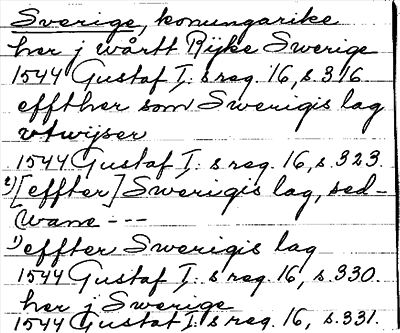 Sverige, konungarike
her j wårtt Rijke Swerige
1544 Gustaf I:s reg. 16, s. 316.
effther som Swerigis lag
vtwijser
1544 Gustaf I:s reg. 16, s. 323.
2) [effter] Swerigis lag, sed-
wane ---
1) effter Swerigis lag
1544 Gustaf I:s reg. 16, s. 330.
her j Swerige
1544 Gustaf I:s reg. 16, s. 331.